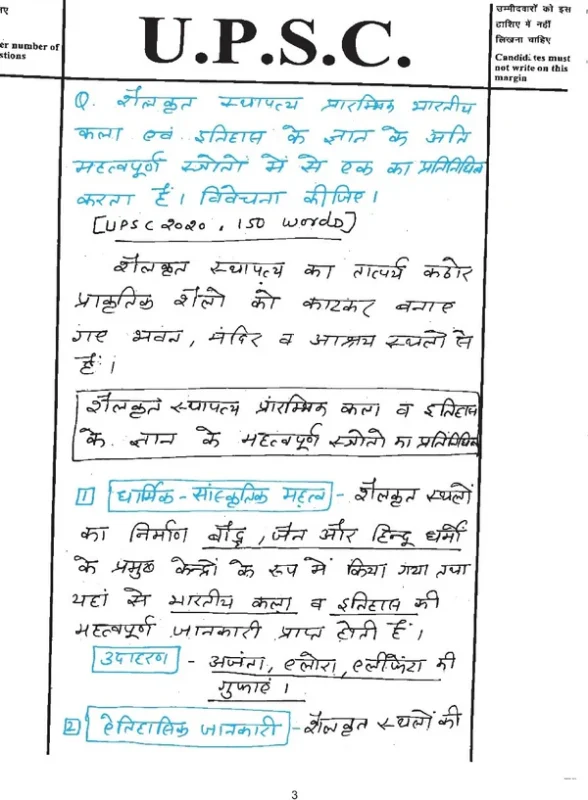 U.P.S.C.
er number of
stions
उम्मीदवारों को इस
हाशिए में नहीं
लिखना चाहिए
Candidates must
not write on this
margin
Q. शैलकृत स्थापत्य प्रारम्भिक भारतीय
कला एवं इतिहास के ज्ञान के अति
महत्वपूर्ण स्त्रोतों में से एक का प्रतिनिधित्व
करता हैं। विवेचना कीजिए।
[UPSC 2020, 150 words]
शैलकृत स्थापत्य का तात्पर्य कठोर
प्राकृतिक शैलो को काटकर बनाए
गए भवन, मंदिर व आश्रय स्थलों से
हैं।
शैलकृत स्थापत्य प्रारम्भिक कला व इतिहास
के ज्ञान के महत्वपूर्ण स्त्रोतो का प्रतिनिधित्व
1 धार्मिक-सांस्कृतिक महत्व - शैलकृत स्थलों
का निर्माण बौद्ध, जैन और हिन्दू धर्मों
के प्रमुख केन्द्रों के रूप में किया गया तथा
यहां से भारतीय कला व इतिहास की
महत्वपूर्ण जानकारी प्राप्त होती हैं।
उदाहरण - अजंता, एलोरा, एलीफेंटा की
गुफाएं।
2 ऐतिहासिक जानकारी - शैलकृत स्थलों की
3